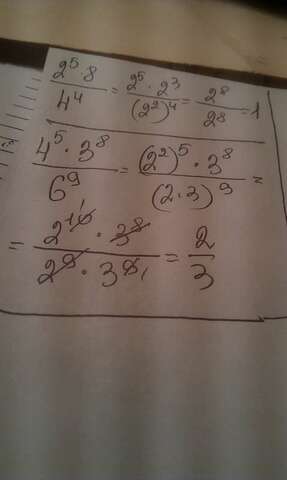 2⁵·8/4⁴ = 2⁵·2³/(2²)⁴ = 2⁸/2⁸ = 1
4⁵·3⁸/6⁹ = (2²)⁵·3⁸/(2·3)⁹ =
= 2¹⁰·3⁸/2⁹·3⁹ = 2/3